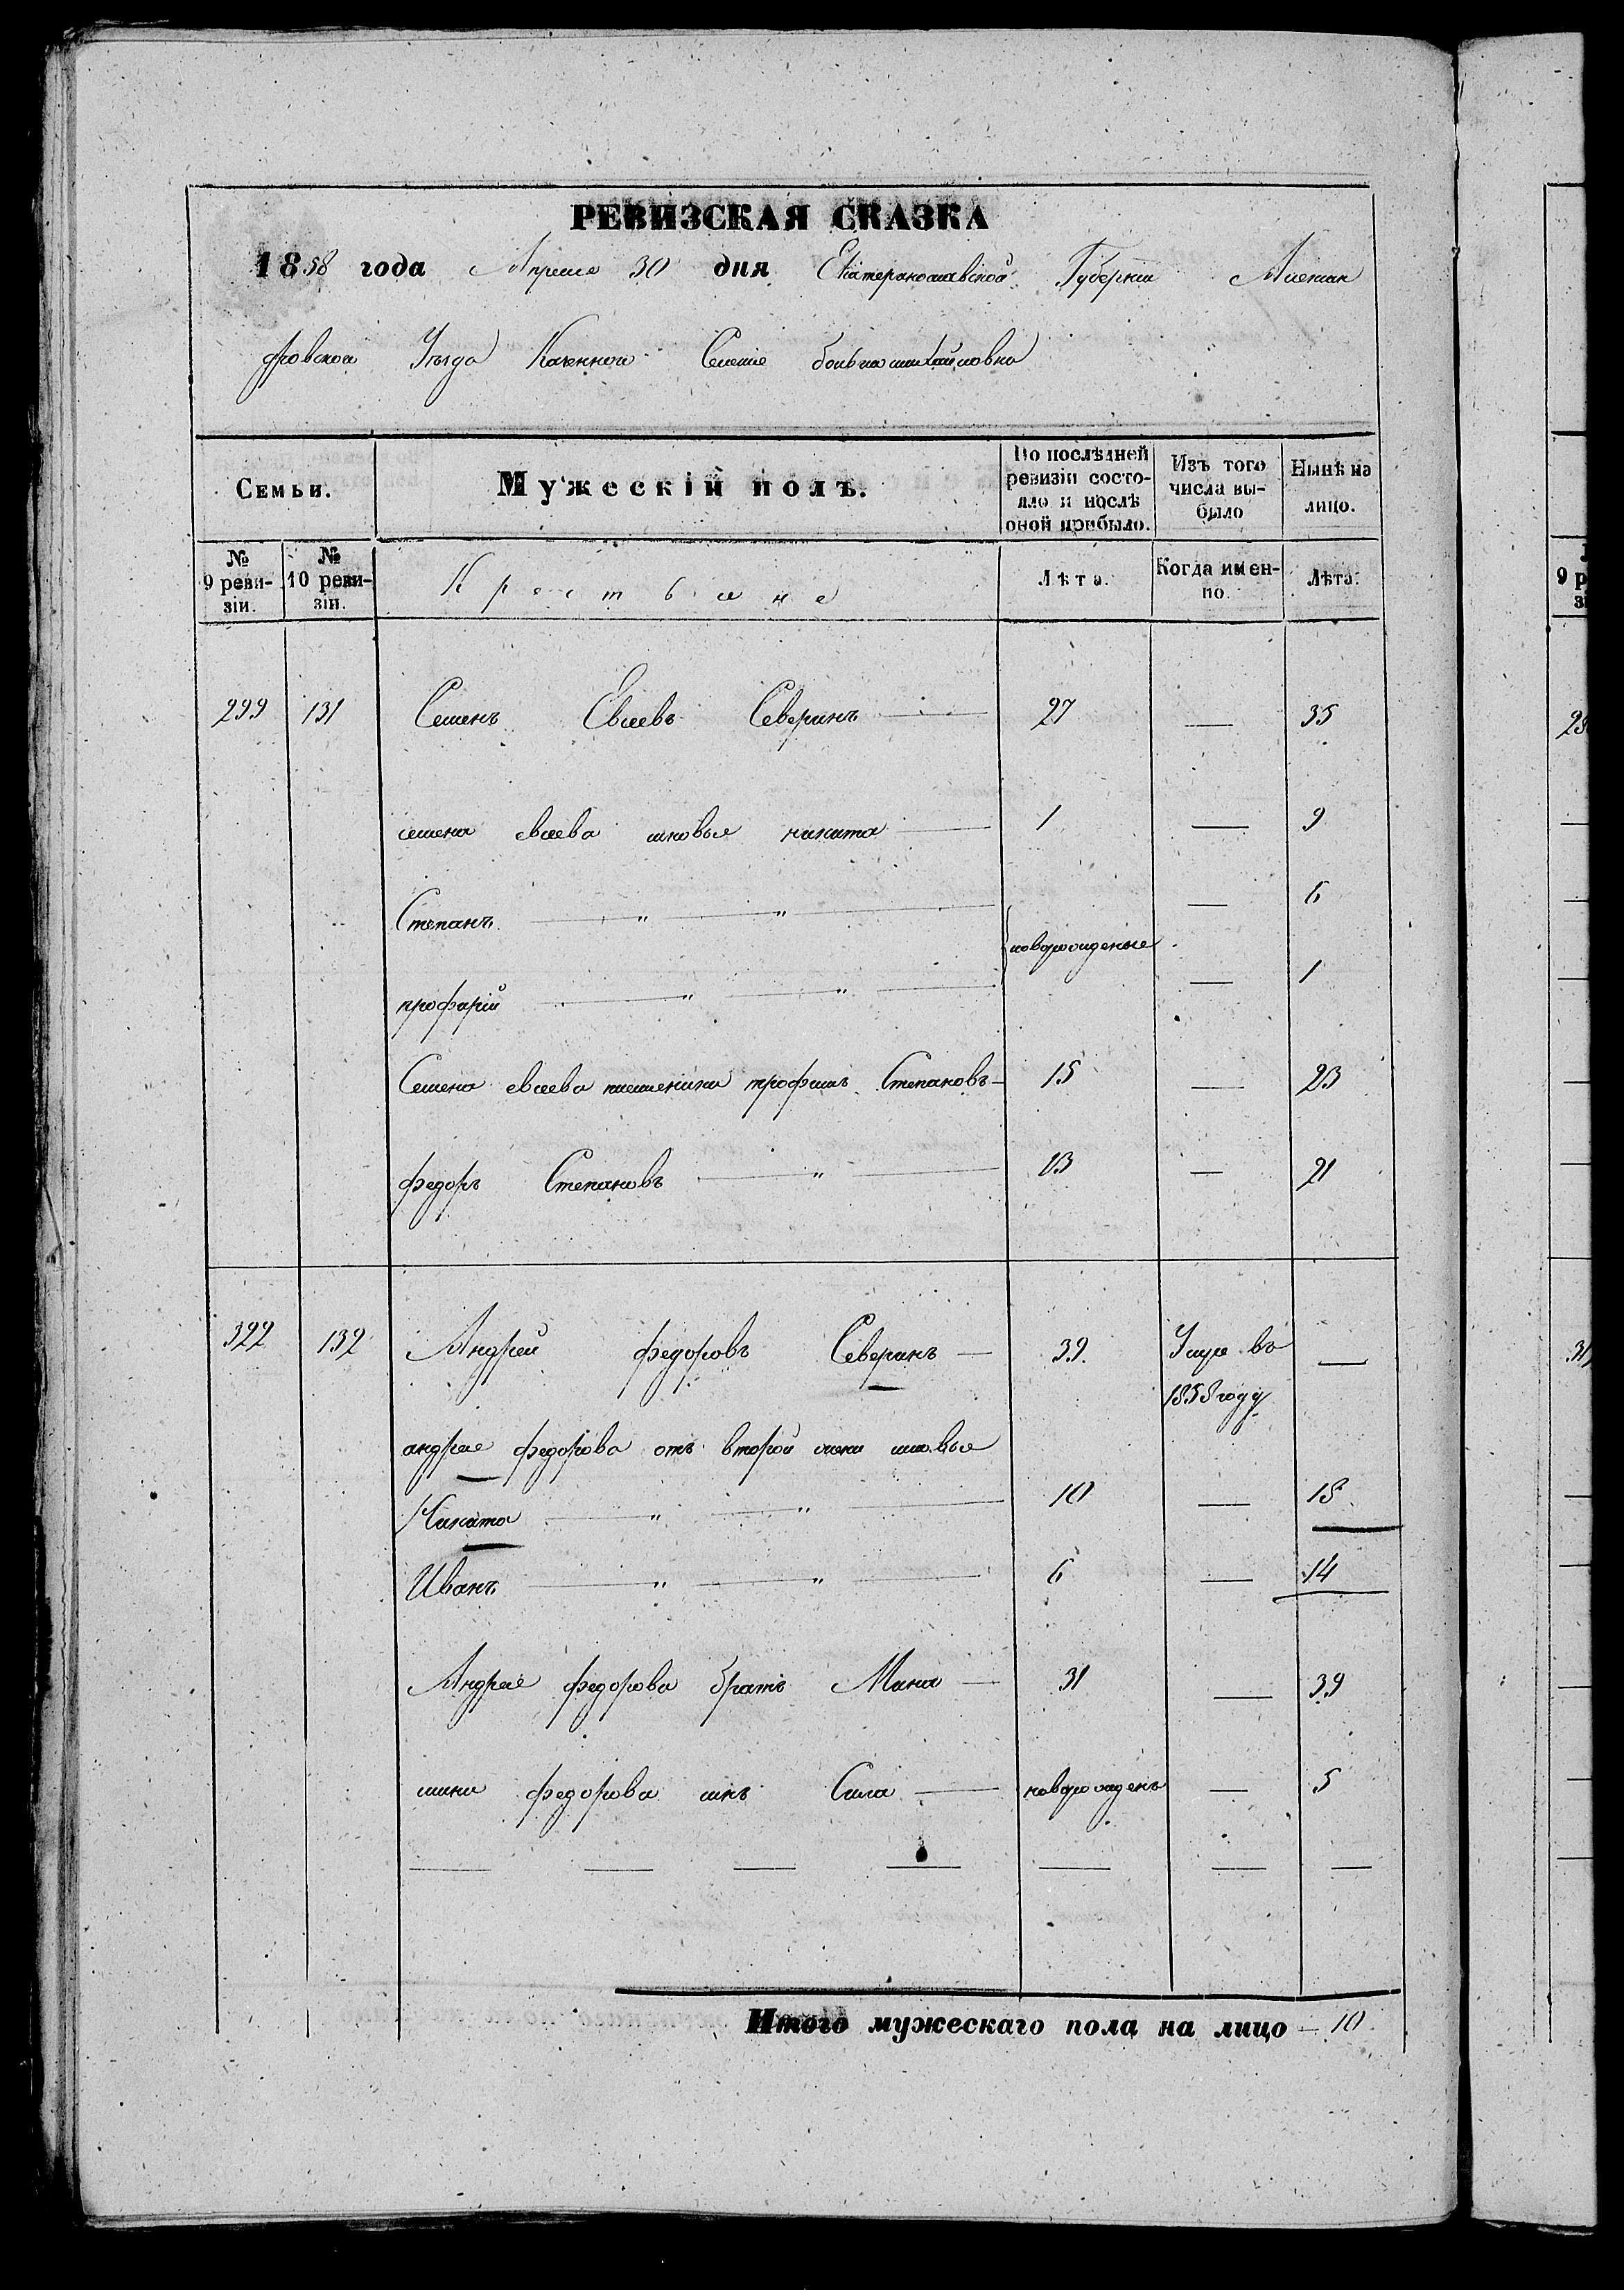 РЕВИЗСКАЯ СКАЗКА
1858 года Апреля 30 дня Екатеринославской Губернии Алексан
дровскоя Уезда Казенног Селение большмихайловки
Семьи. Мужескій полъ. По послѣдней ревизіи состояло и послѣ оной прибыло. Изъ того числа выбыло Нынѣ на лицо.
№ 9 ревизіи. № 10 ревизіи. Крестьяне Лѣта. Когда именно. Лѣта.
299 131 Семенъ Евсеевъ Северинъ 27 — 35
семена евсеева сновья никита 1 — 9
Степанъ " " — 6
новорожденые
профирій " " — 1
Семена евсеева племеники трофимъ Степановъ 15 — 23
федоръ Степановъ " 13 — 21
322 132 Андрей федоровъ Северинъ — 39 Умре въ —
1858 году
андрея федорова отъ второй жени сновья
Никита " " 10 — 18
Иванъ " " 6 — 14
Андрея федорова братъ Мина — 31 — 39
мини федорова снъ Сила — новорожденъ — 5
Итого мужескаго пола на лицо — 10
9 р